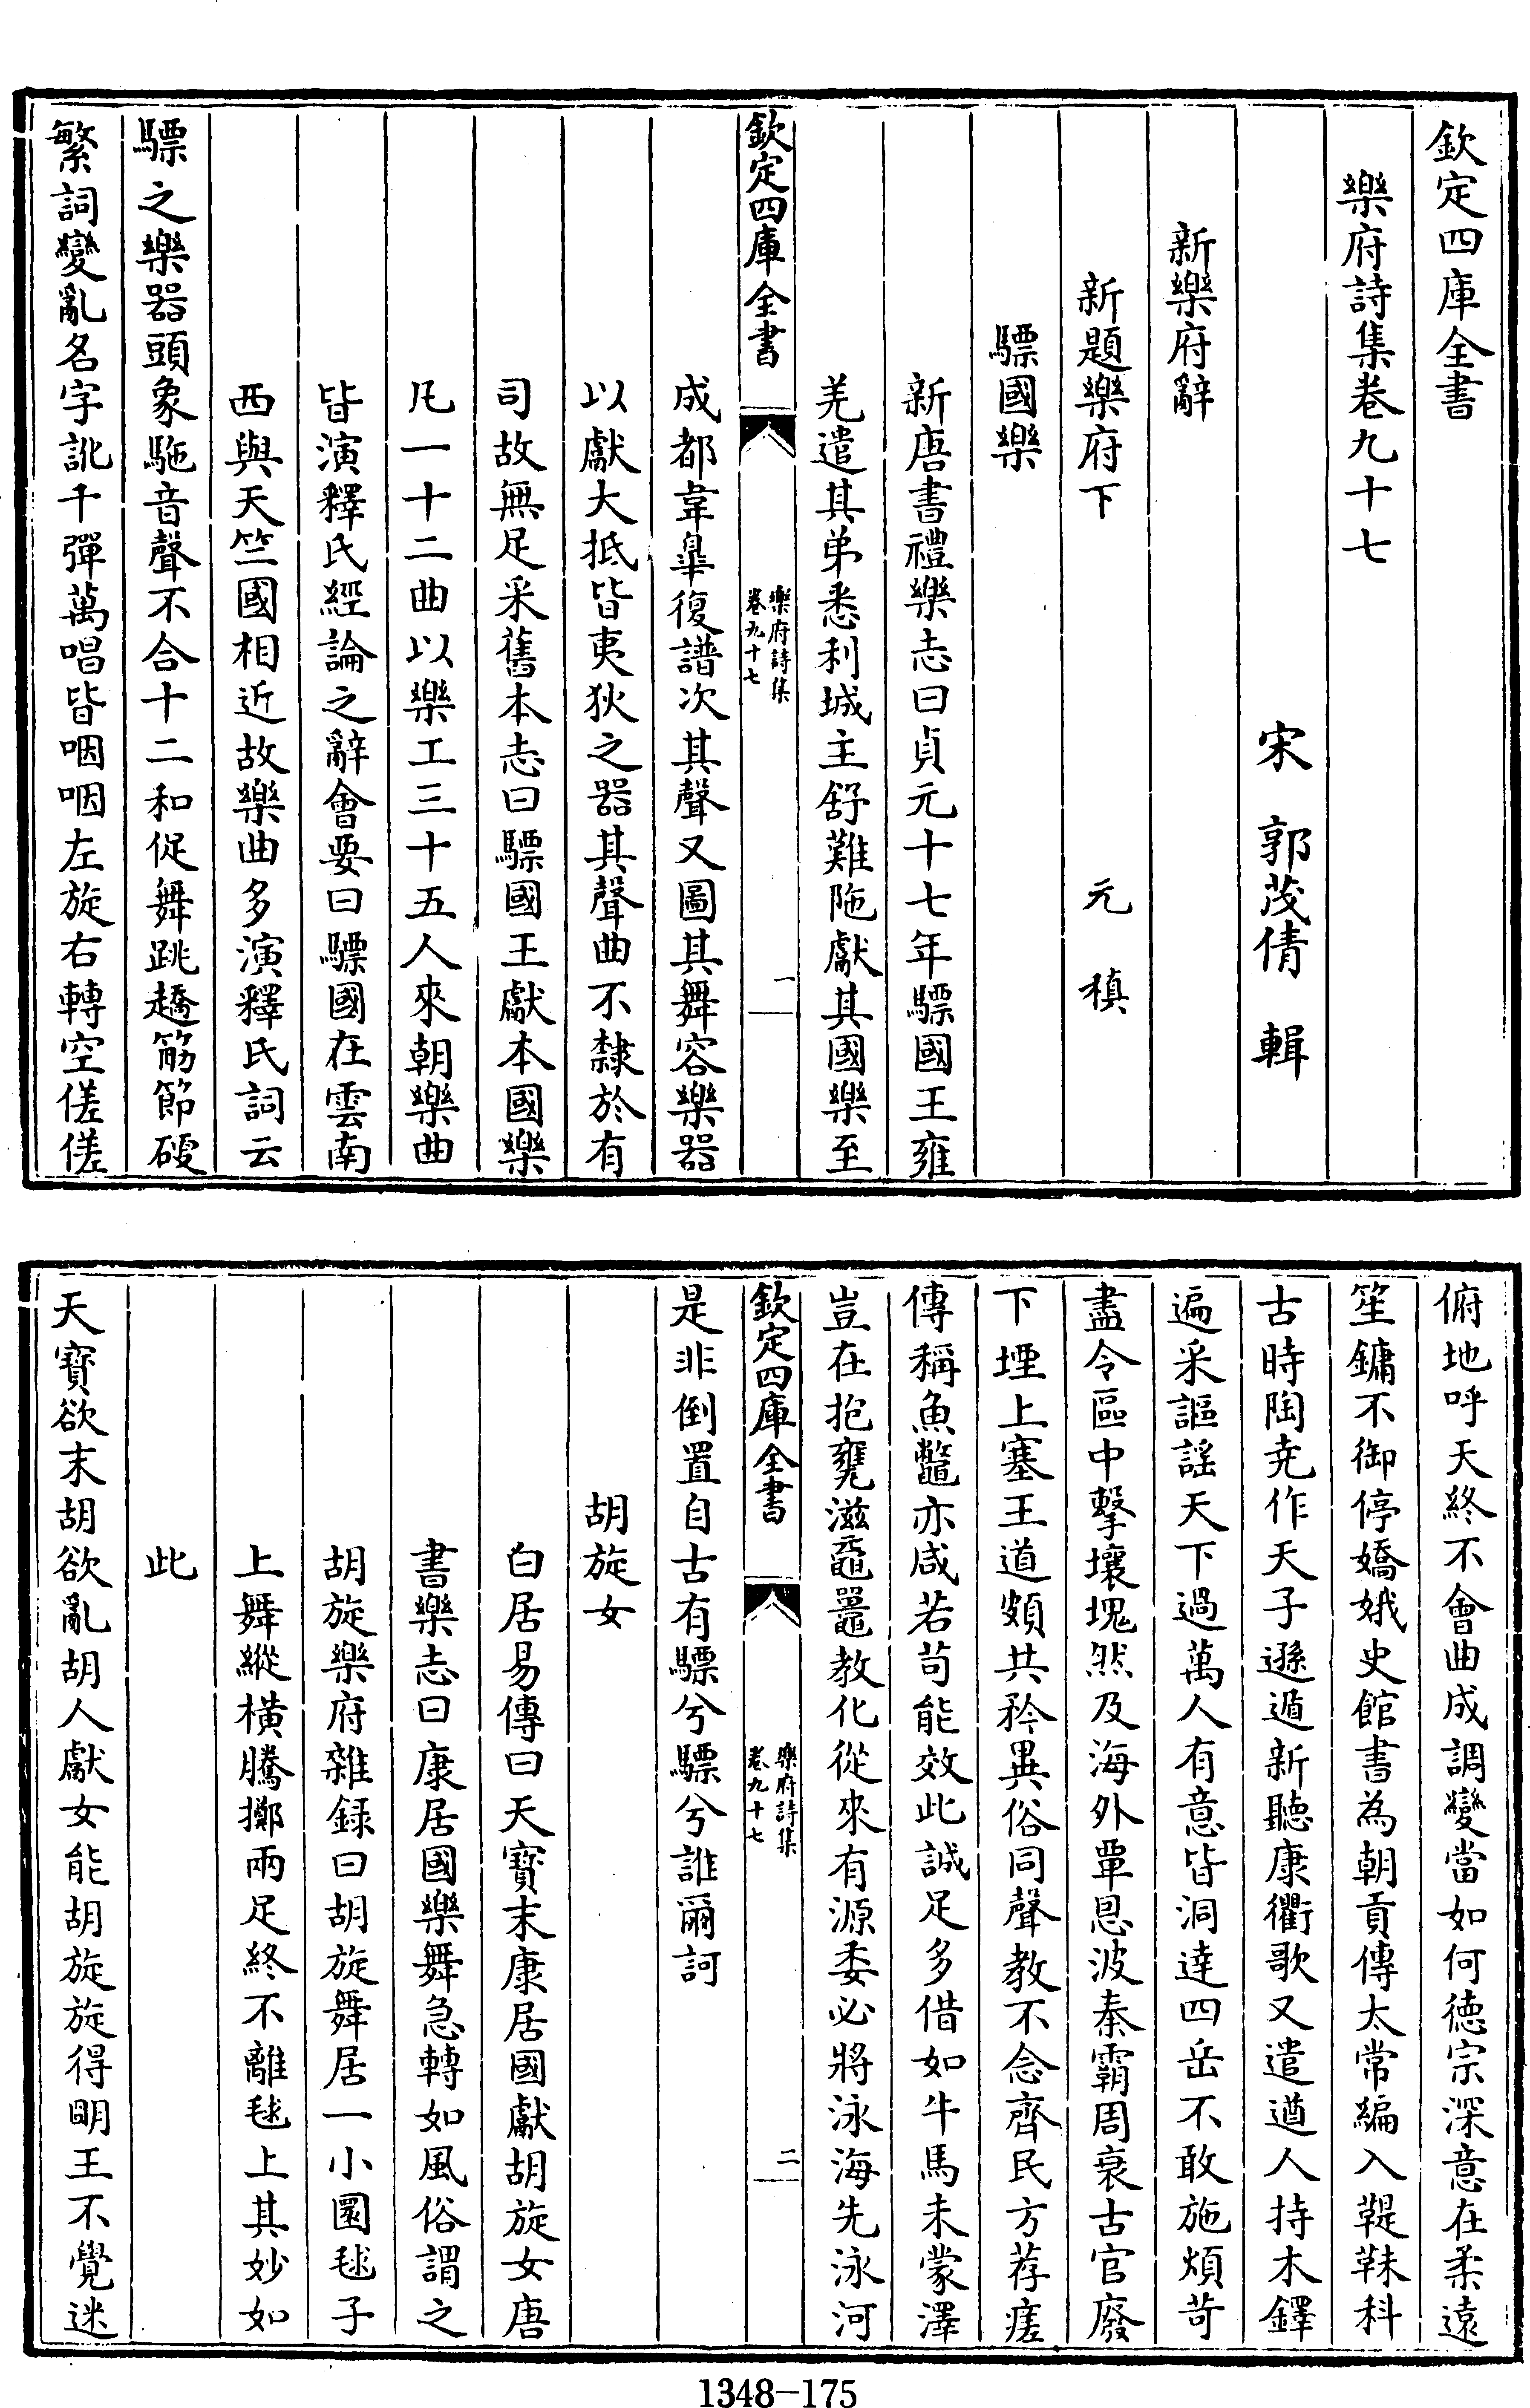 欽定四庫全書
樂府詩集卷九十七
宋 郭茂倩 輯
新樂府辭
新題樂府下 元稹
驃國樂
新唐書禮樂志曰貞元十七年驃國王雍
羌遣其弟悉利城主舒難陁獻其國樂至
欽定四庫全書
樂府詩集
卷九十七
一
成都韋臯復譜次其聲又圖其舞容樂器
以獻大抵皆夷狄之器其聲曲不隸於有
司故無足采舊本志曰驃國王獻本國樂
凡一十二曲以樂工三十五人來朝樂曲
皆演釋氏經論之辭會要曰驃國在雲南
西與天竺國相近故樂曲多演釋氏詞云
驃之樂器頭象駞音聲不合十二和促舞跳趫筋節硬
繁詞變亂名字訛千彈萬唱皆咽咽左旋右轉空傞傞
俯地呼天終不會曲成調變當如何德宗深意在柔遠
笙鏞不御停嬌娥史館書為朝貢傳太常編入鞮靺科
古時陶尭作天子遜遁新聽康衢歌又遣遒人持木鐸
遍采謳謡天下過萬人有意皆洞達四岳不敢施煩苛
盡令區中擊壤塊然及海外覃恩波秦霸周衰古官廢
下堙上塞王道頗共矜異俗同聲教不念齊民方荐瘥
傳稱魚鼈亦咸若苟能效此誠足多借如牛馬未蒙澤
豈在抱甕滋黿鼉教化從來有源委必將泳海先泳河
欽定四庫全書
樂府詩集
卷九十七
二
是非倒置自古有驃兮驃兮誰爾訶
胡旋女
白居易傳曰天寳末康居國獻胡旋女唐
書樂志曰康居國樂舞急轉如風俗謂之
胡旋樂府雜録曰胡旋舞居一小圓毬子
上舞縱橫騰擲兩足終不離毬上其妙如
此
天寳欲末胡欲亂胡人獻女能胡旋旋得明王不覺迷
1348-175